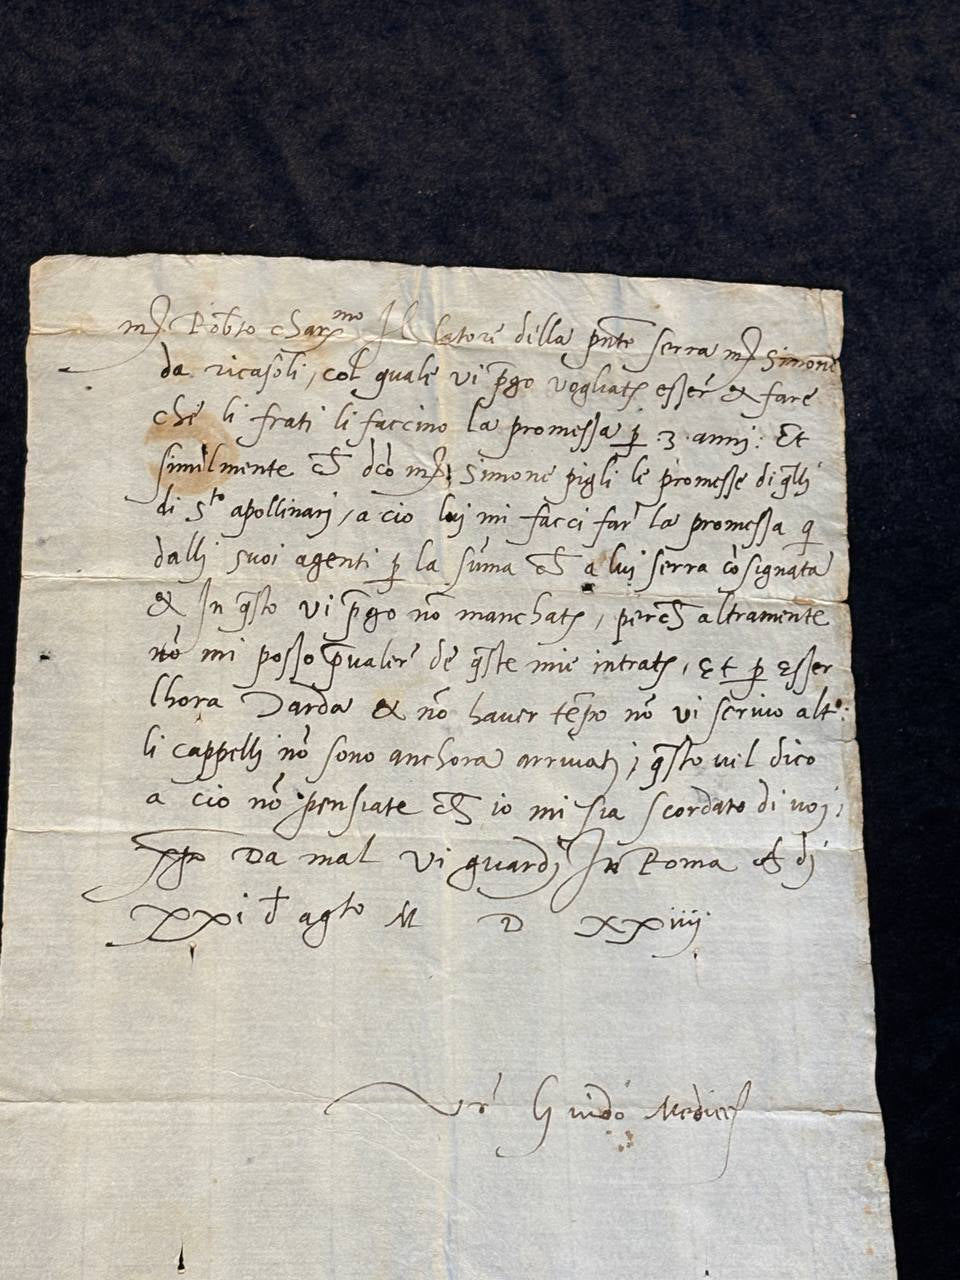 m. Robto charmo Il latore della pnte serra m. Simone
da ricasoli, col quale vi pgo vogliate esser & fare
che li frati li faccino la promessa p .3. anni: Et
similmente ch dco m. Simone pigli le promesse di qlli
di sto apollinari, a cio lui mi facci far la promessa q
dalli suoi agenti p la suma ch a lui serra cosignata
& In qsto vi pgo no manchate, perch altramente
no mi posso pualer de qste mie intrate, Et p esser
lhora tarda & no haver tepo no vi scrivo alto:
li cappelli no sono anchora arrivati; qsto vel dico
a cio no pensiate ch io mi sia scordato di voi;
Da mal vi guardi In Roma A di
XXi d agto M D XXiiii
Vr Guido Medices